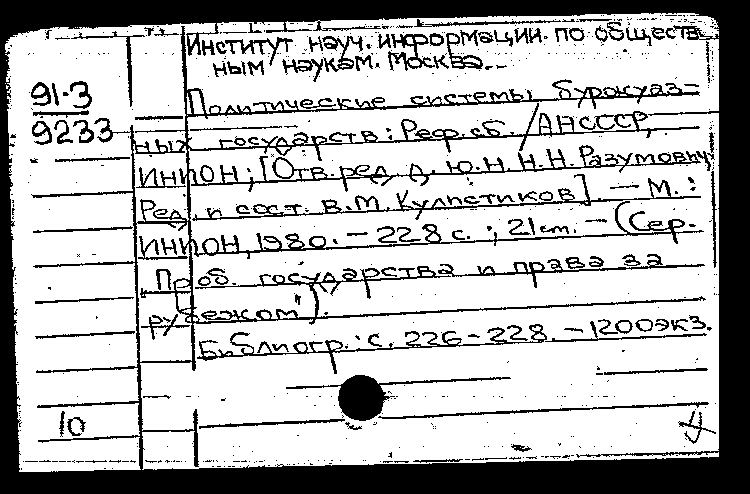 Институт науч. информации по обществ-
ным наукам. Москва.
91-3
9233
Политические системы буржуаз-
ных государств: Реф. сб. /АНСССР,
ИНИОН; [Отв. ред. д. ю. н. Н.Н. Разумович,
Ред. и сост. В.М. Кулистиков]. — М.:
ИНИОН, 1980. - 228 с.; 21 cm. - (Сер.
"Проб. государства и права за
рубежом").
Библиогр.: с. 226-228. - 1200экз.
10